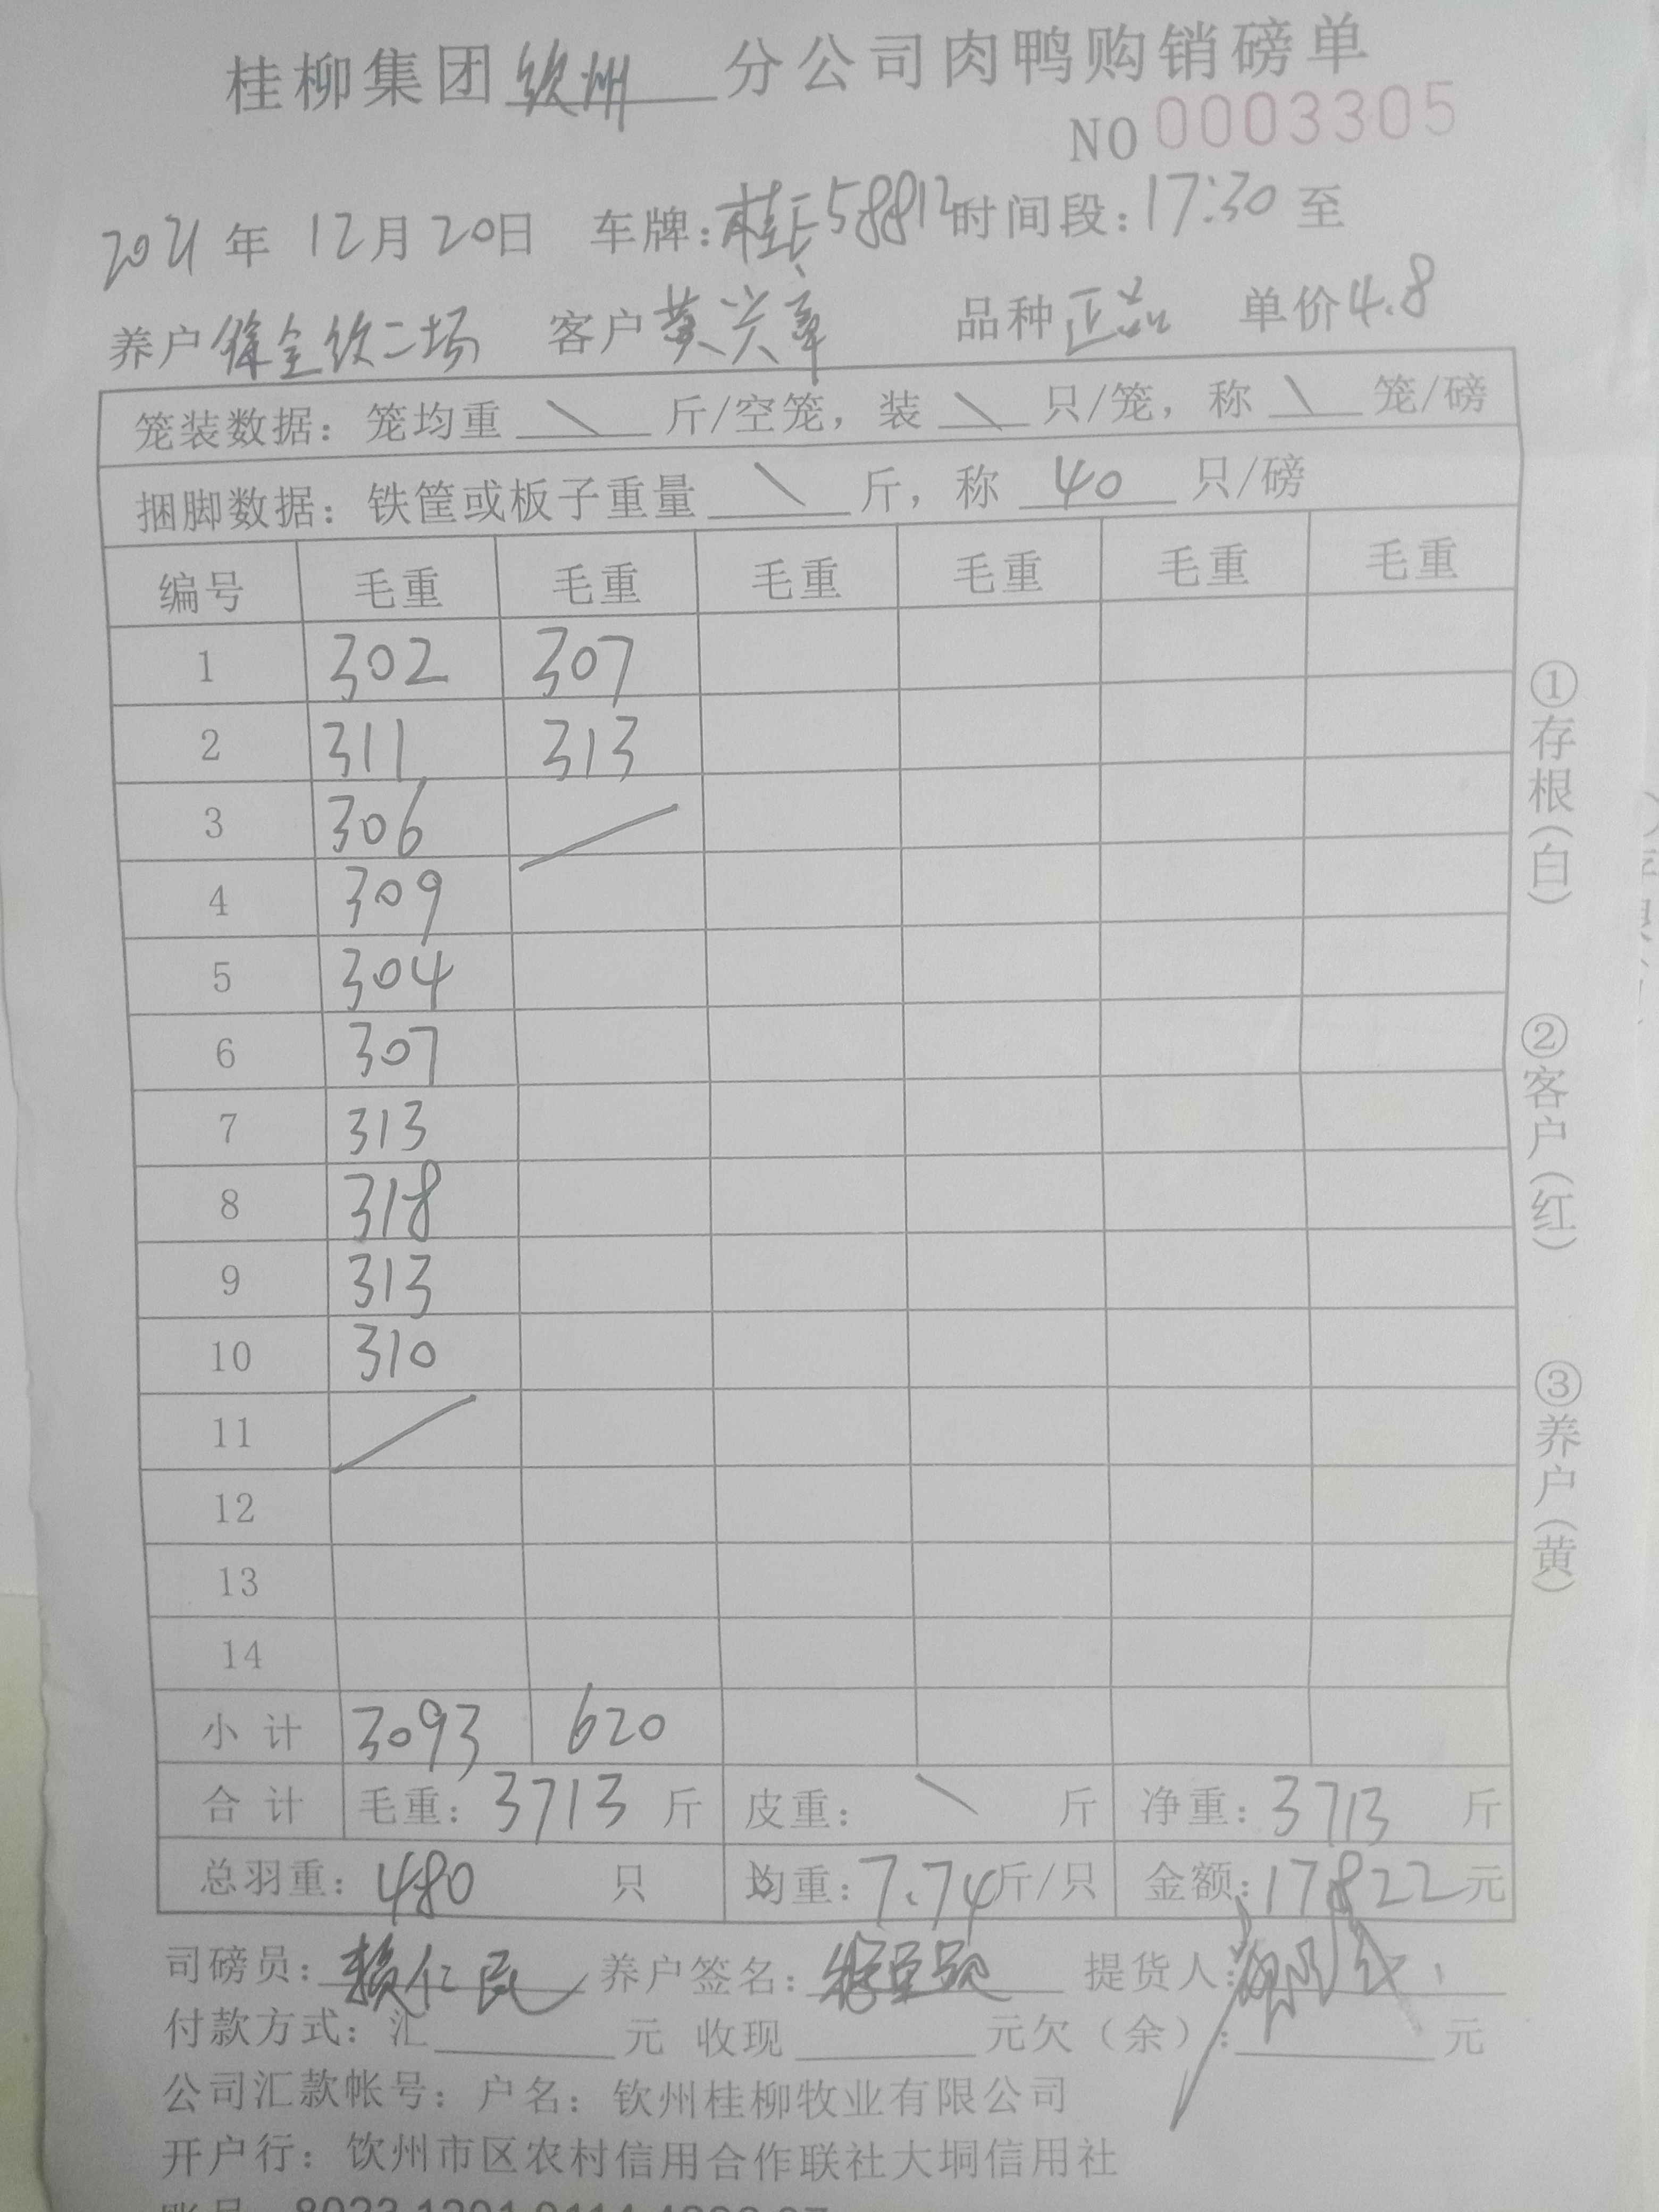 桂柳集团钦州分公司肉鸭购销磅单
NO 0003305
2021年 12月20日 车牌:桂E58812时间段:17:30 至
养户徐全钦二场 客户黄兴章 品种正品 单价4.8
笼装数据: 笼均重 \ 斤/空笼, 装 \ 只/笼, 称 \ 笼/磅
捆脚数据: 铁筐或板子重量 \ 斤, 称 40 只/磅
编号 毛重 毛重 毛重 毛重 毛重 毛重
1 302 307
2 311 313
3 306
4 309
5 304
6 307
7 313
8 318
9 313
10 310
11
12
13
14
小计 3093 620
合计 毛重: 3713 斤 皮重: \ 斤 净重: 3713 斤
总羽重: 480 只 均重: 7.74斤/只 金额: 17822元
司磅员: 赖仁民 养户签名: 提货人:
付款方式: 汇 元 收现 元欠(余): 元
公司汇款帐号: 户名: 钦州桂柳牧业有限公司
开户行: 钦州市区农村信用合作联社大垌信用社
①存根(白)
②客户(红)
③养户(黄)